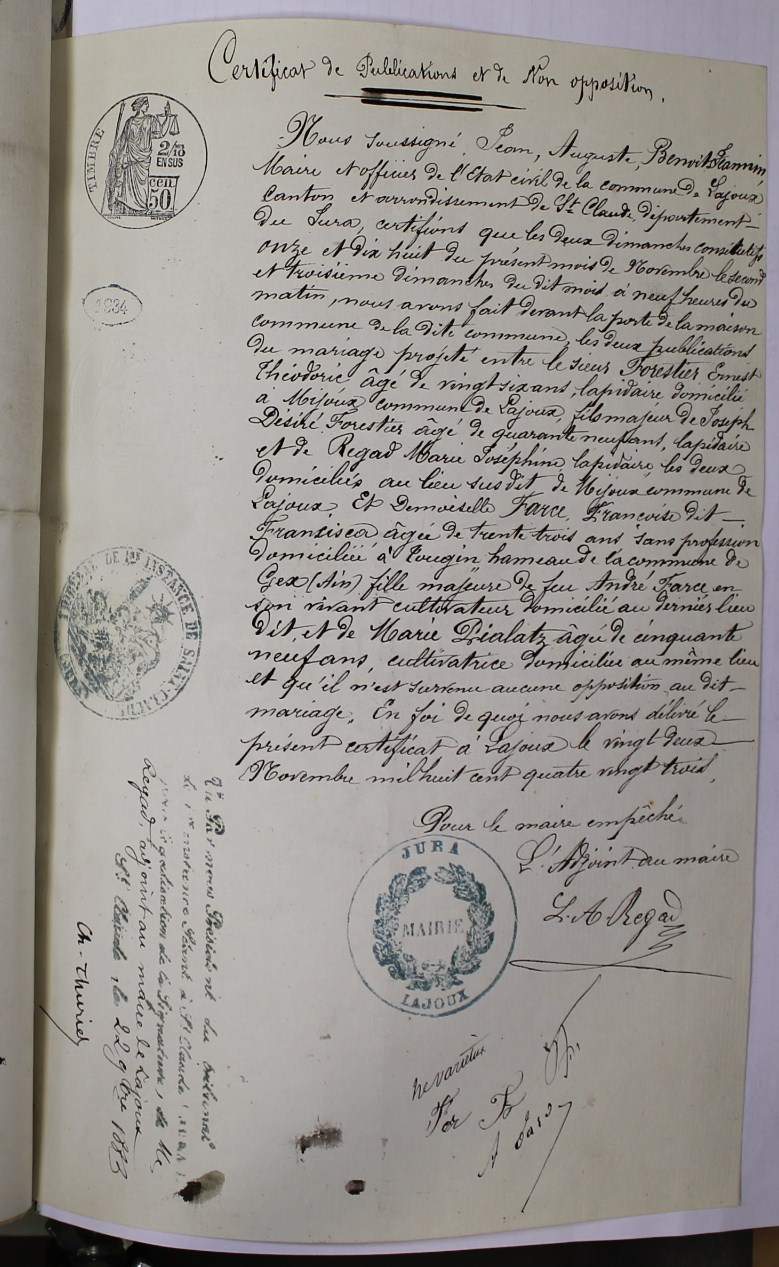 Certificat de Publications et de Non opposition.
TIMBRE
2/10
EN SUS
cen
50
1834
Nous soussigné, Jean, Auguste, Benoit Jeannin
Maire et officier de l'Etat civil de la commune de Lajoux
Canton et arrondissement de St Claude, département
du Jura, certifions que les deux dimanches consécutifs
onze et dix huit du présent mois de Novembre le second
et troisième dimanches du dit mois à neuf heures du
matin, nous avons fait devant la porte de la maison
commune de la dite commune, les deux publications
du mariage projeté entre le sieur Forestier Ernest
Théodoric, âgé de vingt six ans, lapidaire domicilié
à Mijoux commune de Lajoux, fils majeur de Joseph
Désiré Forestier âgé de quarante neuf ans, lapidaire
et de Regad Marie Joséphine lapidaire, les deux
domiciliés au lieu susdit de Mijoux commune de
Lajoux, Et Demoiselle Farce, Françoise dit
Francisca âgée de trente trois ans sans profession
domiciliéé à Tougin hameau de la commune de
Gex (Ain) fille majeure de feu André Farce en
son vivant cultivateur domicilié au dernier lieu
dit, et de Marie Pialatz âgée de cinquante
neuf ans, cultivatrice domiciliée au même lieu
et qu'il n'est survenu aucune opposition au dit
mariage. En foi de quoi nous avons délivré le
présent certificat à Lajoux le vingt deux
Novembre mil huit cent quatre vingt trois.
Pour le maire empêché
L'Adjoint au maire
L. A Regad
JURA
MAIRIE
LAJOUX
TRIBUNAL DE 1re INSTANCE DE SAINT-CLAUDE
Vu Par nous Président du tribunal
de 1re instance séant à St Claude (Jura)
pour légalisation de la signature, de Mr
Regad, adjoint au maire de Lajoux
St Claude, le 22 9bre 1883
Ch. Thuriet
ne varietur